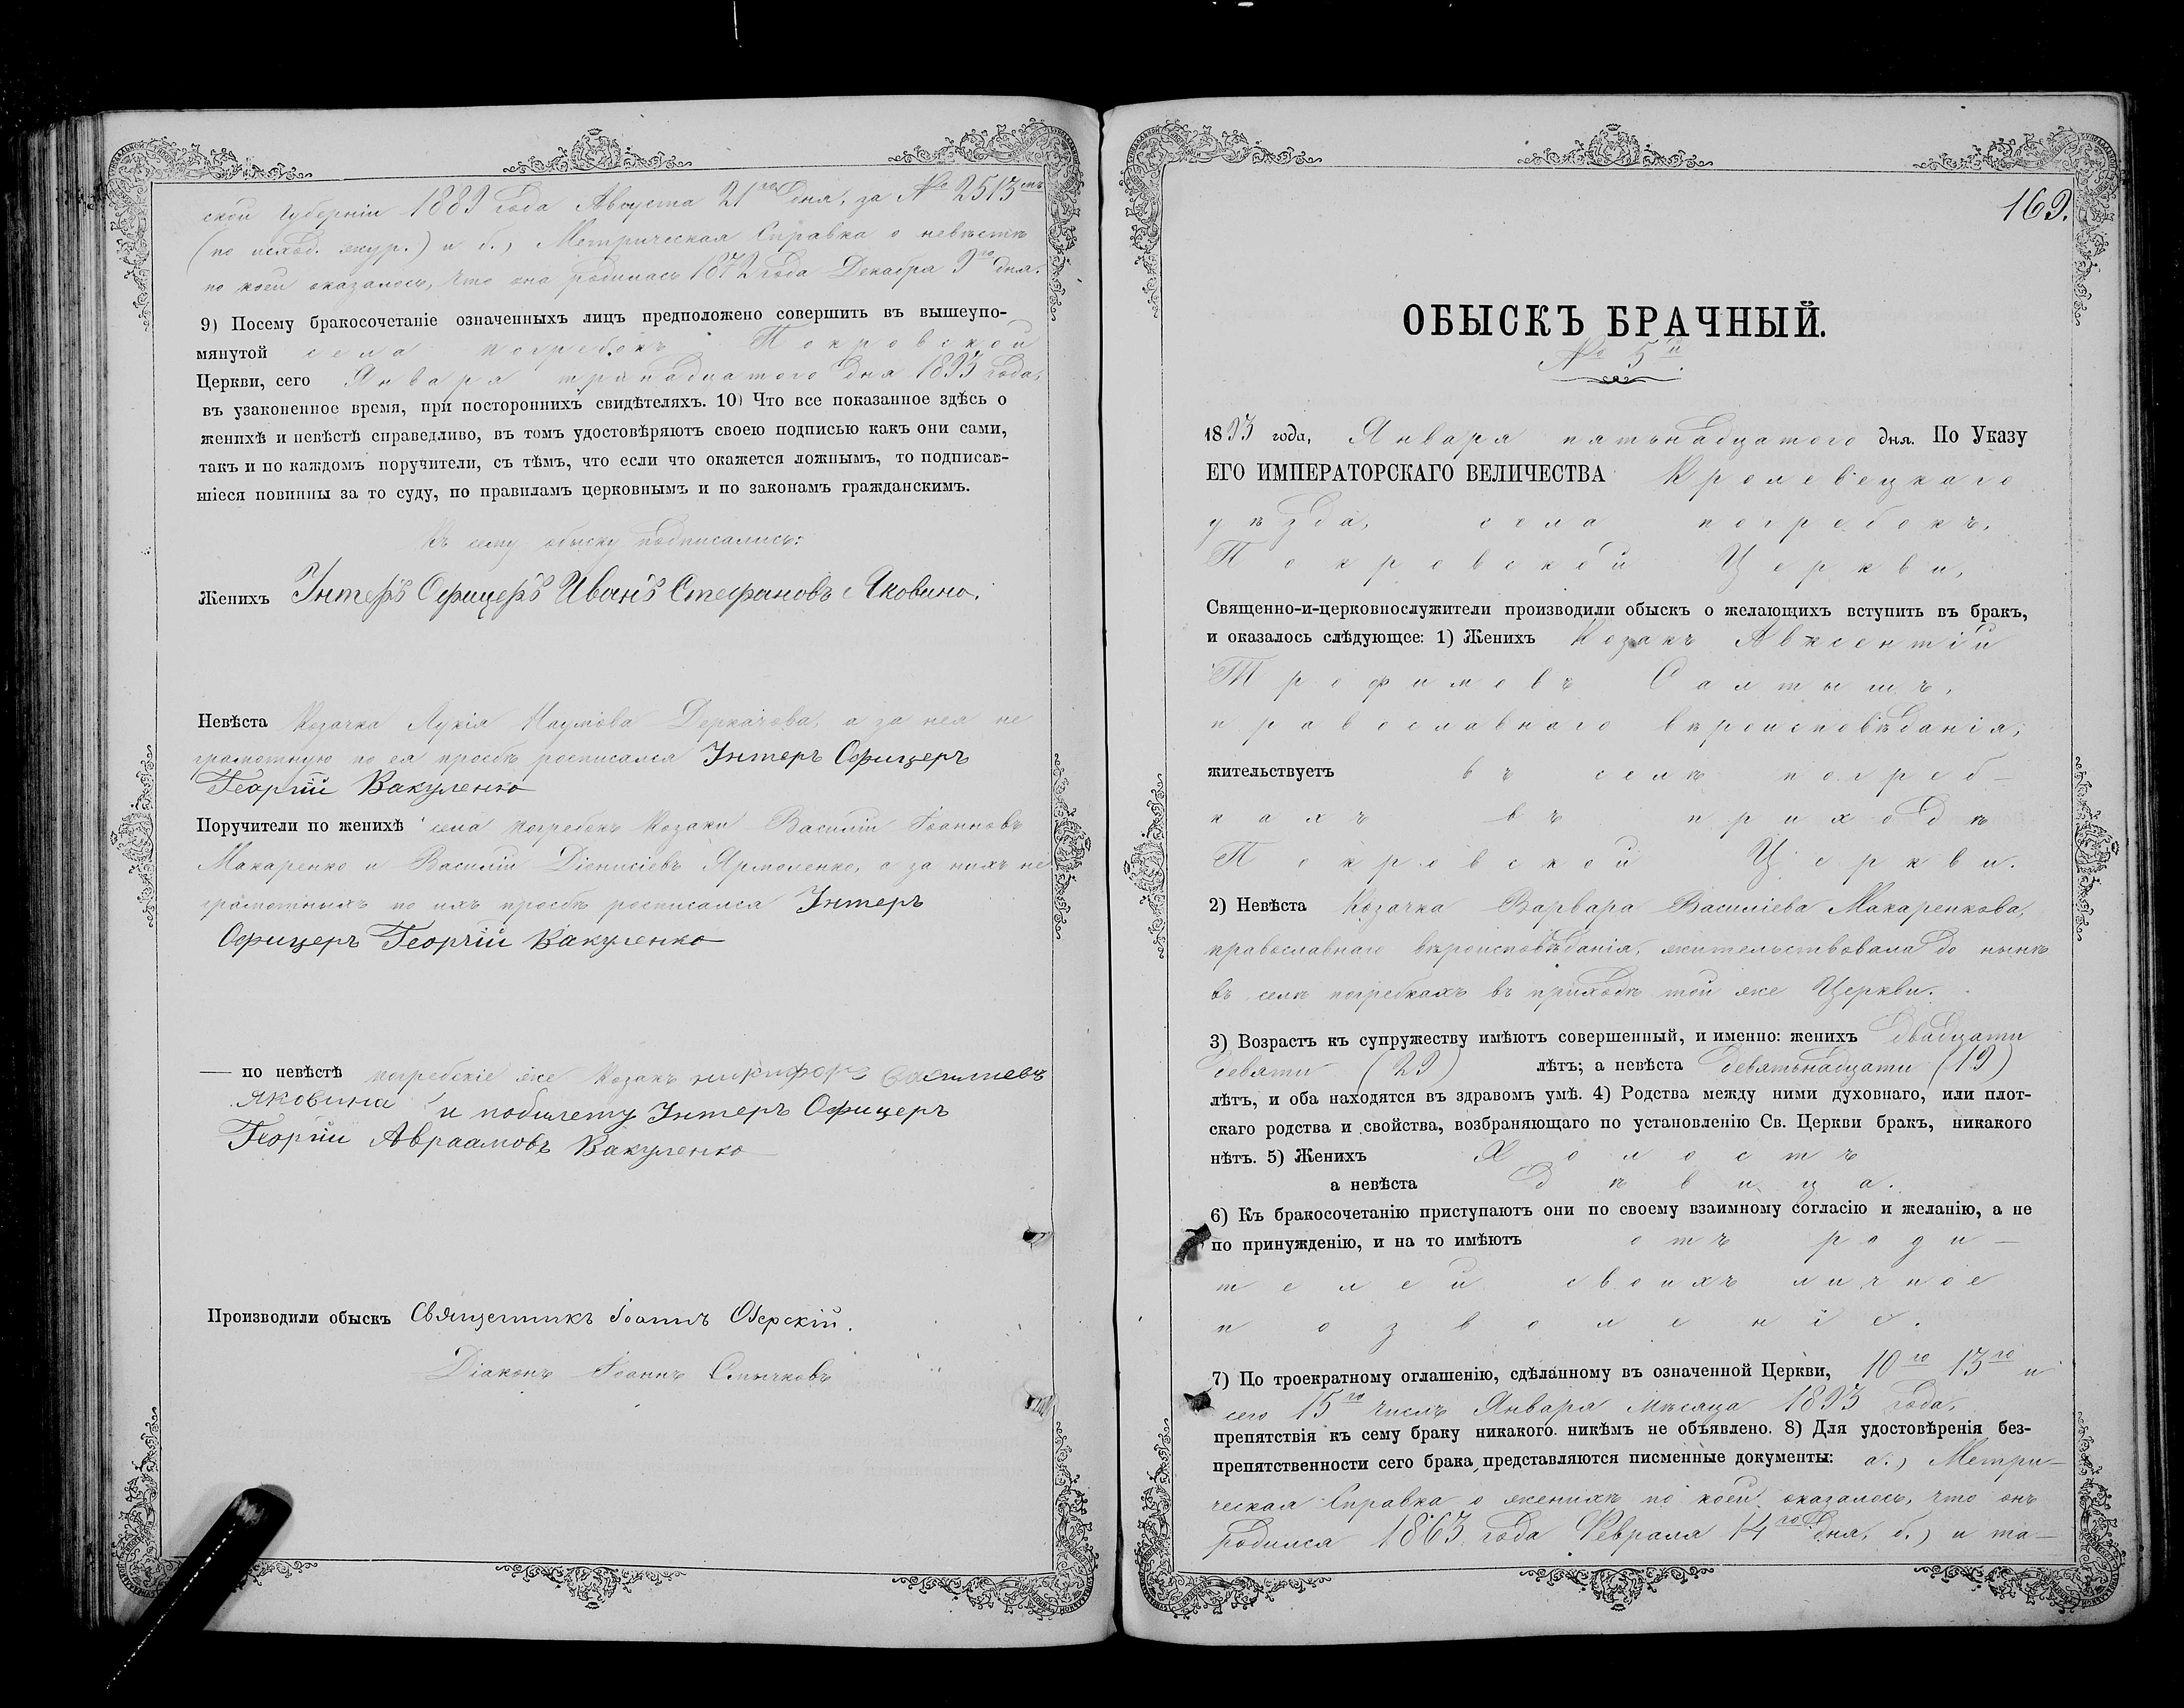 ской губерніи 1889 года Августа 21го дня, за № 2513мъ
(по исход. жур.) и б., Метрическая Справка о невѣстѣ
по коей оказалось, что она родилась 1872 года Декабря 9го дня.
9) Посему бракосочетаніе означенныхъ лицъ предположено совершить въ вышеупо-
мянутой села погребокъ Покровской
Церкви, сего Января тринадцатого дня 1893 года,
въ узаконенное время, при постороннихъ свидѣтеляхъ. 10) Что все показанное здѣсь о
женихѣ и невѣстѣ справедливо, въ томъ удостовѣряютъ своею подписью какъ они сами,
такъ и по каждомъ поручители, съ тѣмъ, что если что окажется ложнымъ, то подписав-
шіеся повинны за то суду, по правиламъ церковнымъ и по законамъ гражданскимъ.
Къ сему обыску подписались:
Женихъ Унтеръ Офицеръ Иванъ Стефановъ Яковина.
Невѣста Козачка Лукія Наумова Деркачова, а за нея не
грамотную по ея просьбѣ росписался Унтеръ Офицеръ
Георгій Вакуленко
Поручители по женихѣ села погребокъ Козаки Василій Іоанновъ
Макаренко и Василій Діонисіевъ Ярмоленко, а за нихъ не
грамотныхъ по ихъ просьбѣ росписался Унтеръ
Офицеръ Георгій Вакуленко
— по невѣстѣ погребскіе же Козакъ никифоръ Василиевъ
яковина и побилету Унтеръ Офицеръ
Георгій Авраамовъ Вакуленко
Производили обыскъ Священникъ Іоаннъ Озерскій.
Діаконъ Іоаннъ Смычковъ
169.
ОБЫСКЪ БРАЧНЫЙ.
№ 5й.
1893 года, Января пятьнадцатого дня. По Указу
ЕГО ИМПЕРАТОРСКАГО ВЕЛИЧЕСТВА Кролевецкаго
уѣзда, села погребокъ,
Покровской Церкви,
Священно-и-церковнослужители производили обыскъ о желающихъ вступить въ бракъ,
и оказалось слѣдующее: 1) Женихъ Козакъ Авксентій
Трофимовъ Салтышъ,
православнаго вѣроисповѣданія,
жительствуетъ въ селѣ погреб-
кахъ въ приходѣ
Покровской Церкви.
2) Невѣста Козачка Варвара Василіева Макаренкова,
православнаго вѣроисповѣданія, жительствовала до нынѣ
въ селѣ погребкахъ въ приходѣ той же Церкви.
3) Возрастъ къ супружеству имѣютъ совершенный, и именно: женихъ двадцати
девяти (29) лѣтъ; а невѣста девятьнадцати (19)
лѣтъ, и оба находятся въ здравомъ умѣ. 4) Родства между ними духовнаго, или плот-
скаго родства и свойства, возбраняющаго по установленію Св. Церкви бракъ, никакого
нѣтъ. 5) Женихъ Холостъ
а невѣста дѣвица.
6) Къ бракосочетанію приступаютъ они по своему взаимному согласію и желанію, а не
по принужденію, и на то имѣютъ отъ роди-
телей своихъ личное
позволеніе.
7) По троекратному оглашенію, сдѣланному въ означенной Церкви, 10го 13го и
сего 15го числъ Января мѣсяца 1893 года,
препятствія къ сему браку никакого никѣмъ не объявлено. 8) Для удостовѣренія без-
препятственности сего брака представляются писменные документы: а., Метри-
ческая Справка о женихѣ по коей оказалось, что онъ
родился 1863 года Февраля 14го дня, б.) и та-